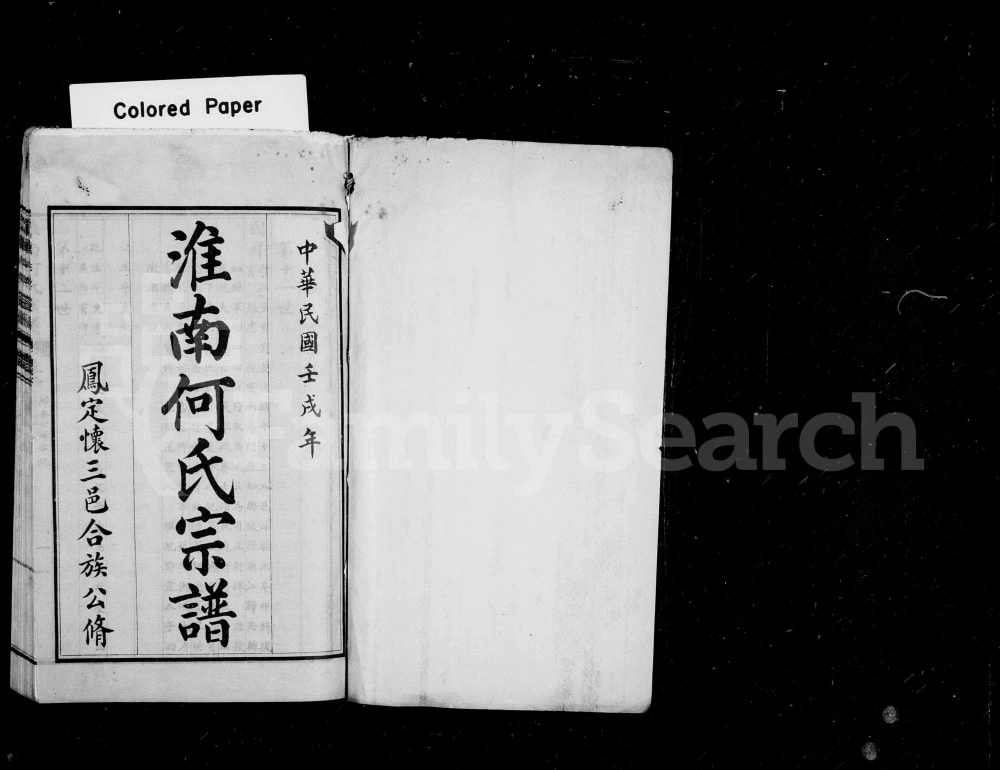 Colored Paper
中華民國壬戌年
淮南何氏宗譜
鳳定懷三邑合族公脩
FamilySearch